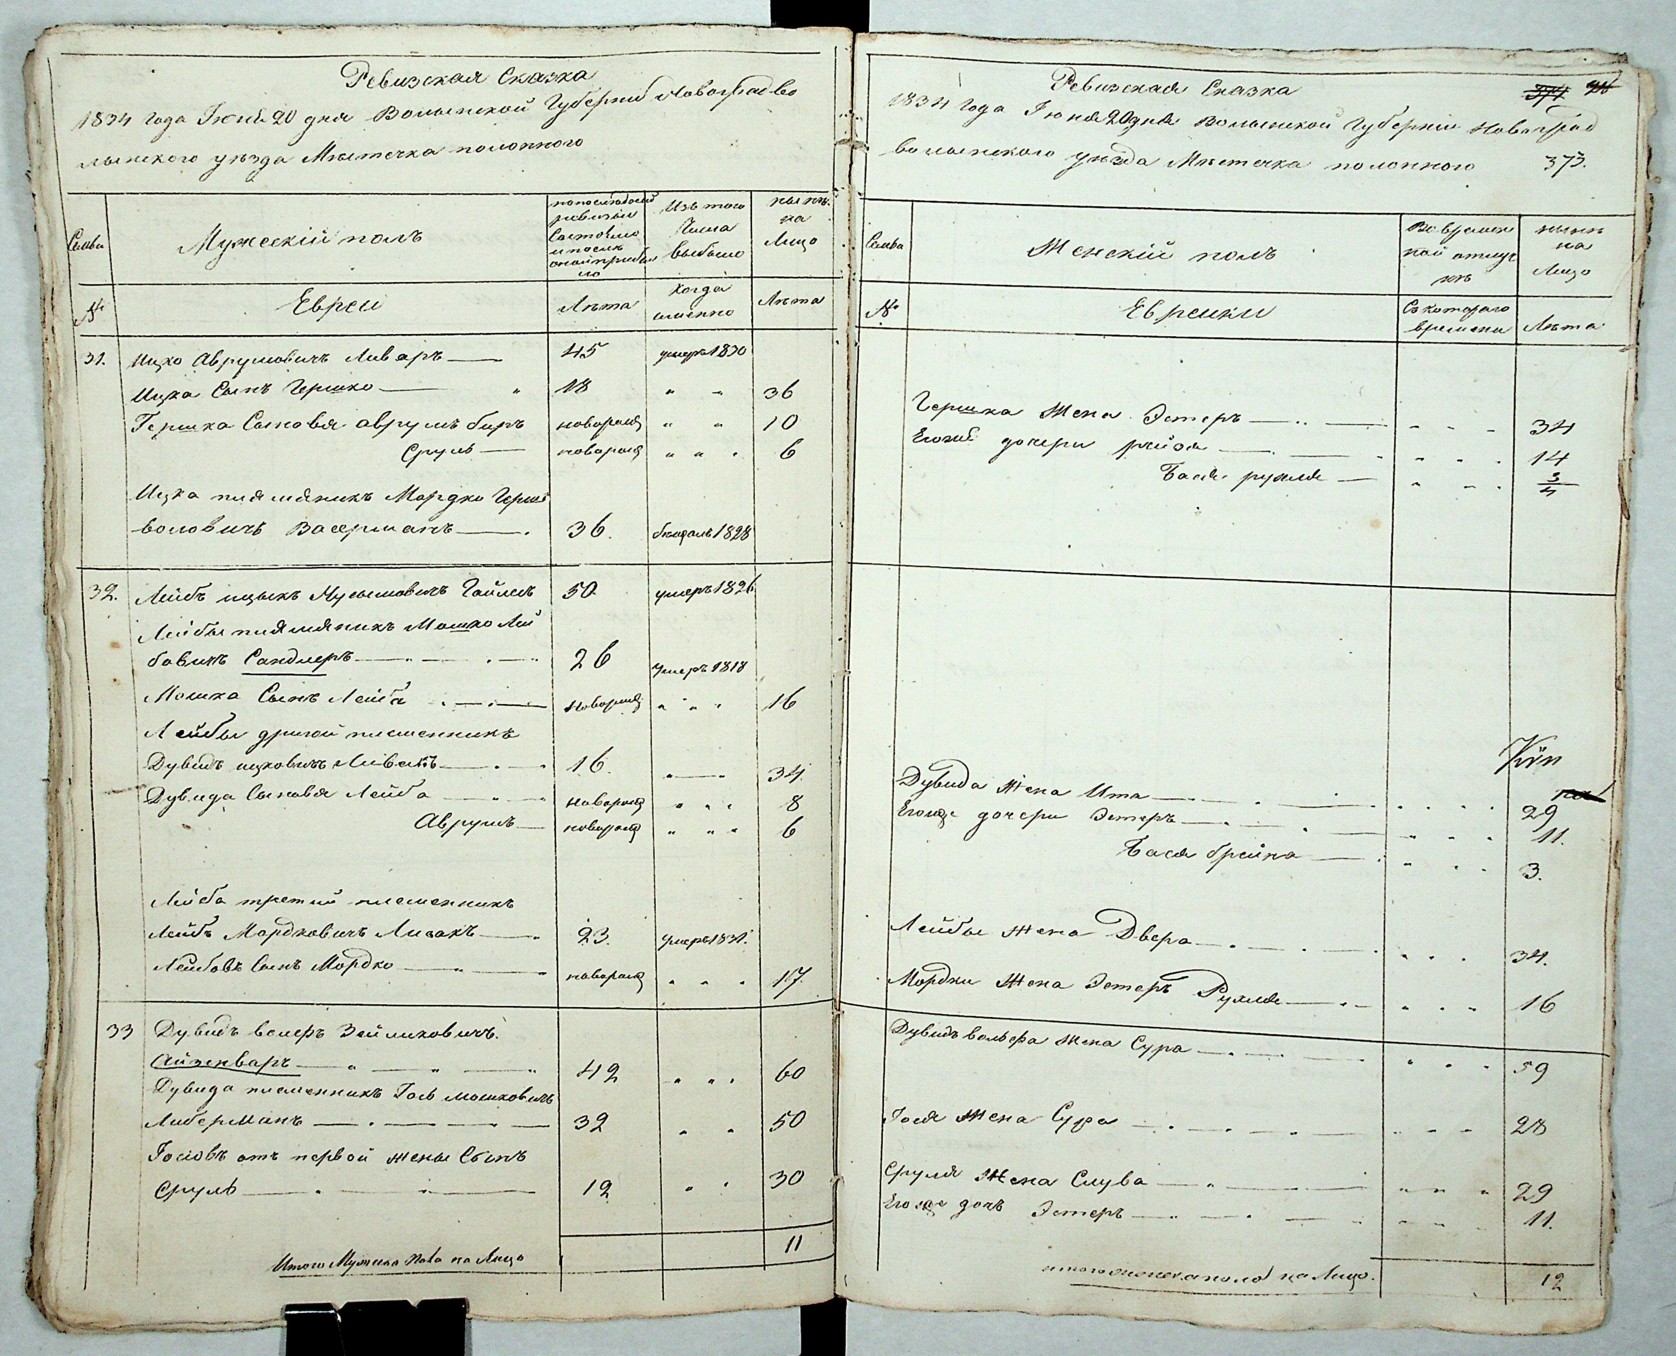 Ревизская Сказка
1834 года Іюня 20 дня Волынской Губерніи Новоградво
лынского уезда Местечка полонного
Семьи
Мужескій полъ
по последней
ревизіи
состояло
и после
оной прибы
ло
Изъ того
числа
выбыло
ныне
на
Лицо
№
Евреи
Лѣта
когда
именно
Лѣта
31. Ицко Аврумовичъ Ливаръ 45 умеръ 1830
Ицка Сынъ Гершко 18 " " 36
Гершка Сыновья аврумъ беръ новорожд " " 10
Сруль новорожд " " " 6
Ицка племяникъ Мордко Герш
ковичъ Васерманъ 36. бежалъ 1828
32. Лейбъ ицыкъ 50 умеръ 1826
Лейбы племяникъ Мошко Лей
бовичъ Сандлеръ 26 умеръ 1818
Мошка Сынъ Лейба новорожд " " " 16
Лейбы другой племенникъ
Дувидъ ицковичъ 16. " 34
Дувида Сыновья Лейба новорожд " " " 8
Аврумъ новорожд " " " 6
Лейба третий племенникъ
Лейбъ Мордковичъ Лисакъ 23. умеръ 1831.
Лейбовъ Сынъ Мордко новорожд " " " 17.
33 Дувидъ волфъ Зейликовичъ
Айзенбаръ 42 " " " 60
Дувида племенникъ Гось мошковичъ
Либерманъ 32 " " 50
Госіовъ отъ первой жены Сынъ
Сруль 12 " " 30
Итого Мужеска Пола на Лицо 11
Ревизская Сказка
374
1834 года Іюня 20 дня Волынской Губерніи Новоград
волынского уезда Местечка полонного 373.
Семьи
Женскій полъ
Во времен
ной отлуч
кѣ
ныне
на
Лицо
№
Еврейки
Съ котораго
времени
Лѣта
Гершка Жена Эстеръ " " " 34
Егожъ дочери рейза " " " 14
Бася рухля " " " 3/4
Дувида Жена Ита " " " " 29
Егоже дочери Эстеръ " " " 11.
Бася брейна " " " 3.
Лейбы Жена Двера " " " 34.
Мордки Жена Эстеръ Рухля " " " 16
Дувидъ вольфа Жена Сура " " " 59
Гося Жена Сура " " " 28
Сруля Жена Слува " " " 29
Егоже дочь Эстеръ " " " 11.
итого женска полу на Лицо. 12